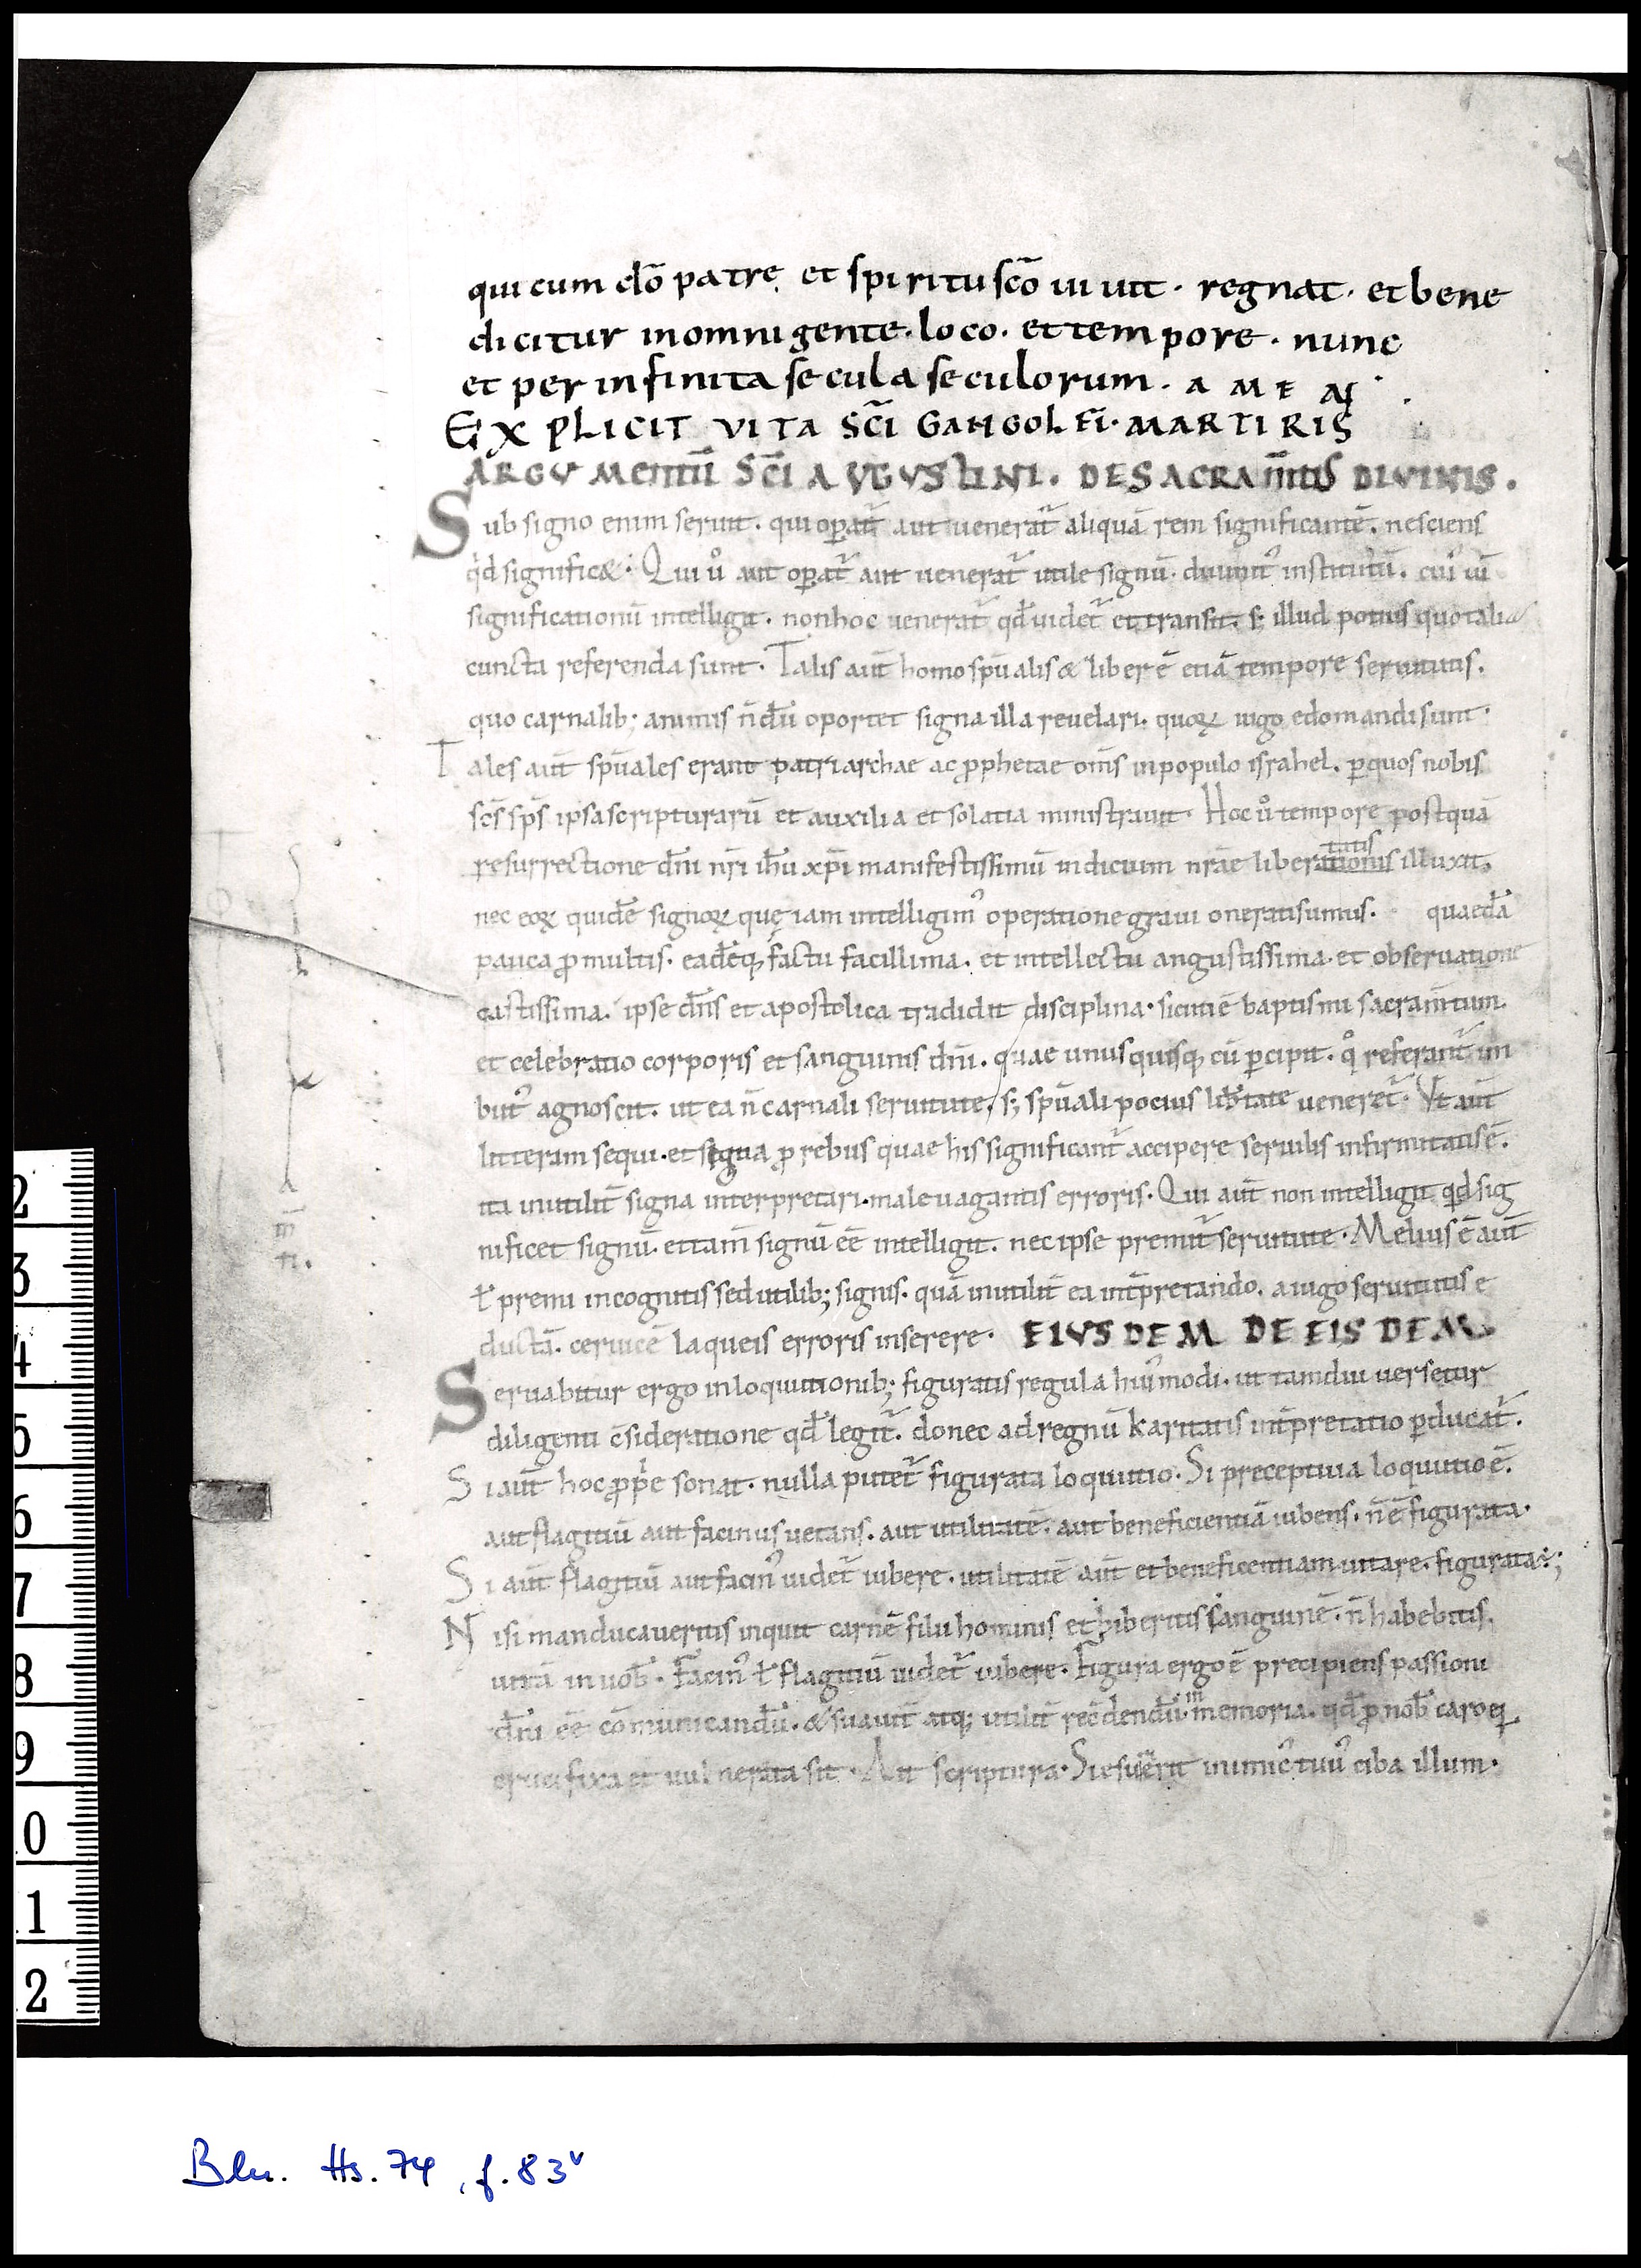 qui cum dō patre et spiritu scō uiuit · regnat · et bene
dicitur in omni gente · loco · et tempore · nunc
et per infinita secula seculorum · A M E N ·
EXPLICIT VITA SC̄I GANGOLFI · MARTIRIS
ARGUMENTŪ SC̄I AUGUSTINI · DE SACRAM̄TIS DIVINIS ·
Sub signo enim seruit · qui operat̃ aut uenerat̃ aliquā rem significantē · nesciens
qd significæ · Qui ů aut operat̃ aut uenerat̃ utile signū · diuinit᷒ institutū · cui᷒ uī
significationū intelligit · non hoc uenerat̃ qd̄ uidet̃ et transit · s; illud potius quo talia
cuncta referenda sunt · Talis aūt homo spūalis & liber ē etiā tempore seruitutis ·
quo carnalib; animis n̄dū oportet signa illa reuelari · quoꝝ iugo edomandi sunt ·
Tales aūt spūales erant patriarchae ac ꝓphetae om̄s in populo israhel · ꝑ quos nobis
sc̄s sp̄s ipsa scripturarū et auxilia et solatia ministrauit · Hoc ů tempore postquā
resurrectione dn̄i nr̄i ih̄u xp̄i manifestissimū indicium nr̄ae liber tatis ationis illuxit ·
nec eoꝝ quidē signoꝝ quę iam intelligim᷒ operatione graui onerati sumus · quaedā
pauca ꝓ multis · eadēq; factu facillima · et intellectu angustissima · et obseruatione
castissima · ipse dn̄s et apostolica tradidit disciplina · sicuti ē baptismi sacram̄tum
et celebratio corporis et sanguinis dn̄i · quae unusquisq; cū ꝑcipit · qͦ referant̃ im
but᷒ agnoscit · ut ea n̄ carnali seruitute · s; spūali pocius lib̄tate ueneret̃ · Vt aūt
litteram sequi · et signa ꝓ rebus quae his significant̃ accipere seruilis infirmitatis ē ·
ita inutilit̄ signa interpretari · male uagantis erroris · Qui aūt non intelligit qd sig
nificet signū · et tam̄ signū eē intelligit · nec ipse premit̃ seruitute · Melius ē aūt
ł premi incognitis sed utilib; signis · quā inutilit̄ ea int̄pretando · a iugo seruitutis e
ductā · ceruicē laqueis erroris inserere · EIUSDEM DE EISDEM
Seruabitur ergo in loquutionib; figuratis regula hui᷒modi · ut tamdiu uersetur
diligenti c̄sideratione qd̄ legit̃ · donec ad regnū karitatis int̄pretatio ꝑducat̃ ·
Si aūt hoc ꝓpͥe sonat · nulla putet̃ figurata loquutio · Si preceptiua loquutio ē ·
aut flagitiū aut facinus uetans · aut utilitatē · aut beneficientiā iubens · n̄ ē figurata ·
Si aūt flagitiū aut facin᷒ uidet̃ iubere · utilitatē aūt et beneficentiam uitare · figurata ÷;
Nisi manducaueritis inquit carnē filii hominis et biberitis sanguinē · n̄ habebitis
uitā in uob̄ · Facin᷒ ł flagitiū uidet̃ iubere · Figura ergo ē precipiens passioni
dn̄i eē cōmunicandū · & suauit̄ atq; utilit̄ recōdendū in memoria · qd̄ ꝓ nob̄ caro ei᷒
crucifixa et uulnerata sit · Ait scriptura · Si esurierit inimic᷒ tuu᷒ ciba illum ·
Blu. Hs. 74, f. 83v
2
3
4
5
6
7
8
9
0
1
2